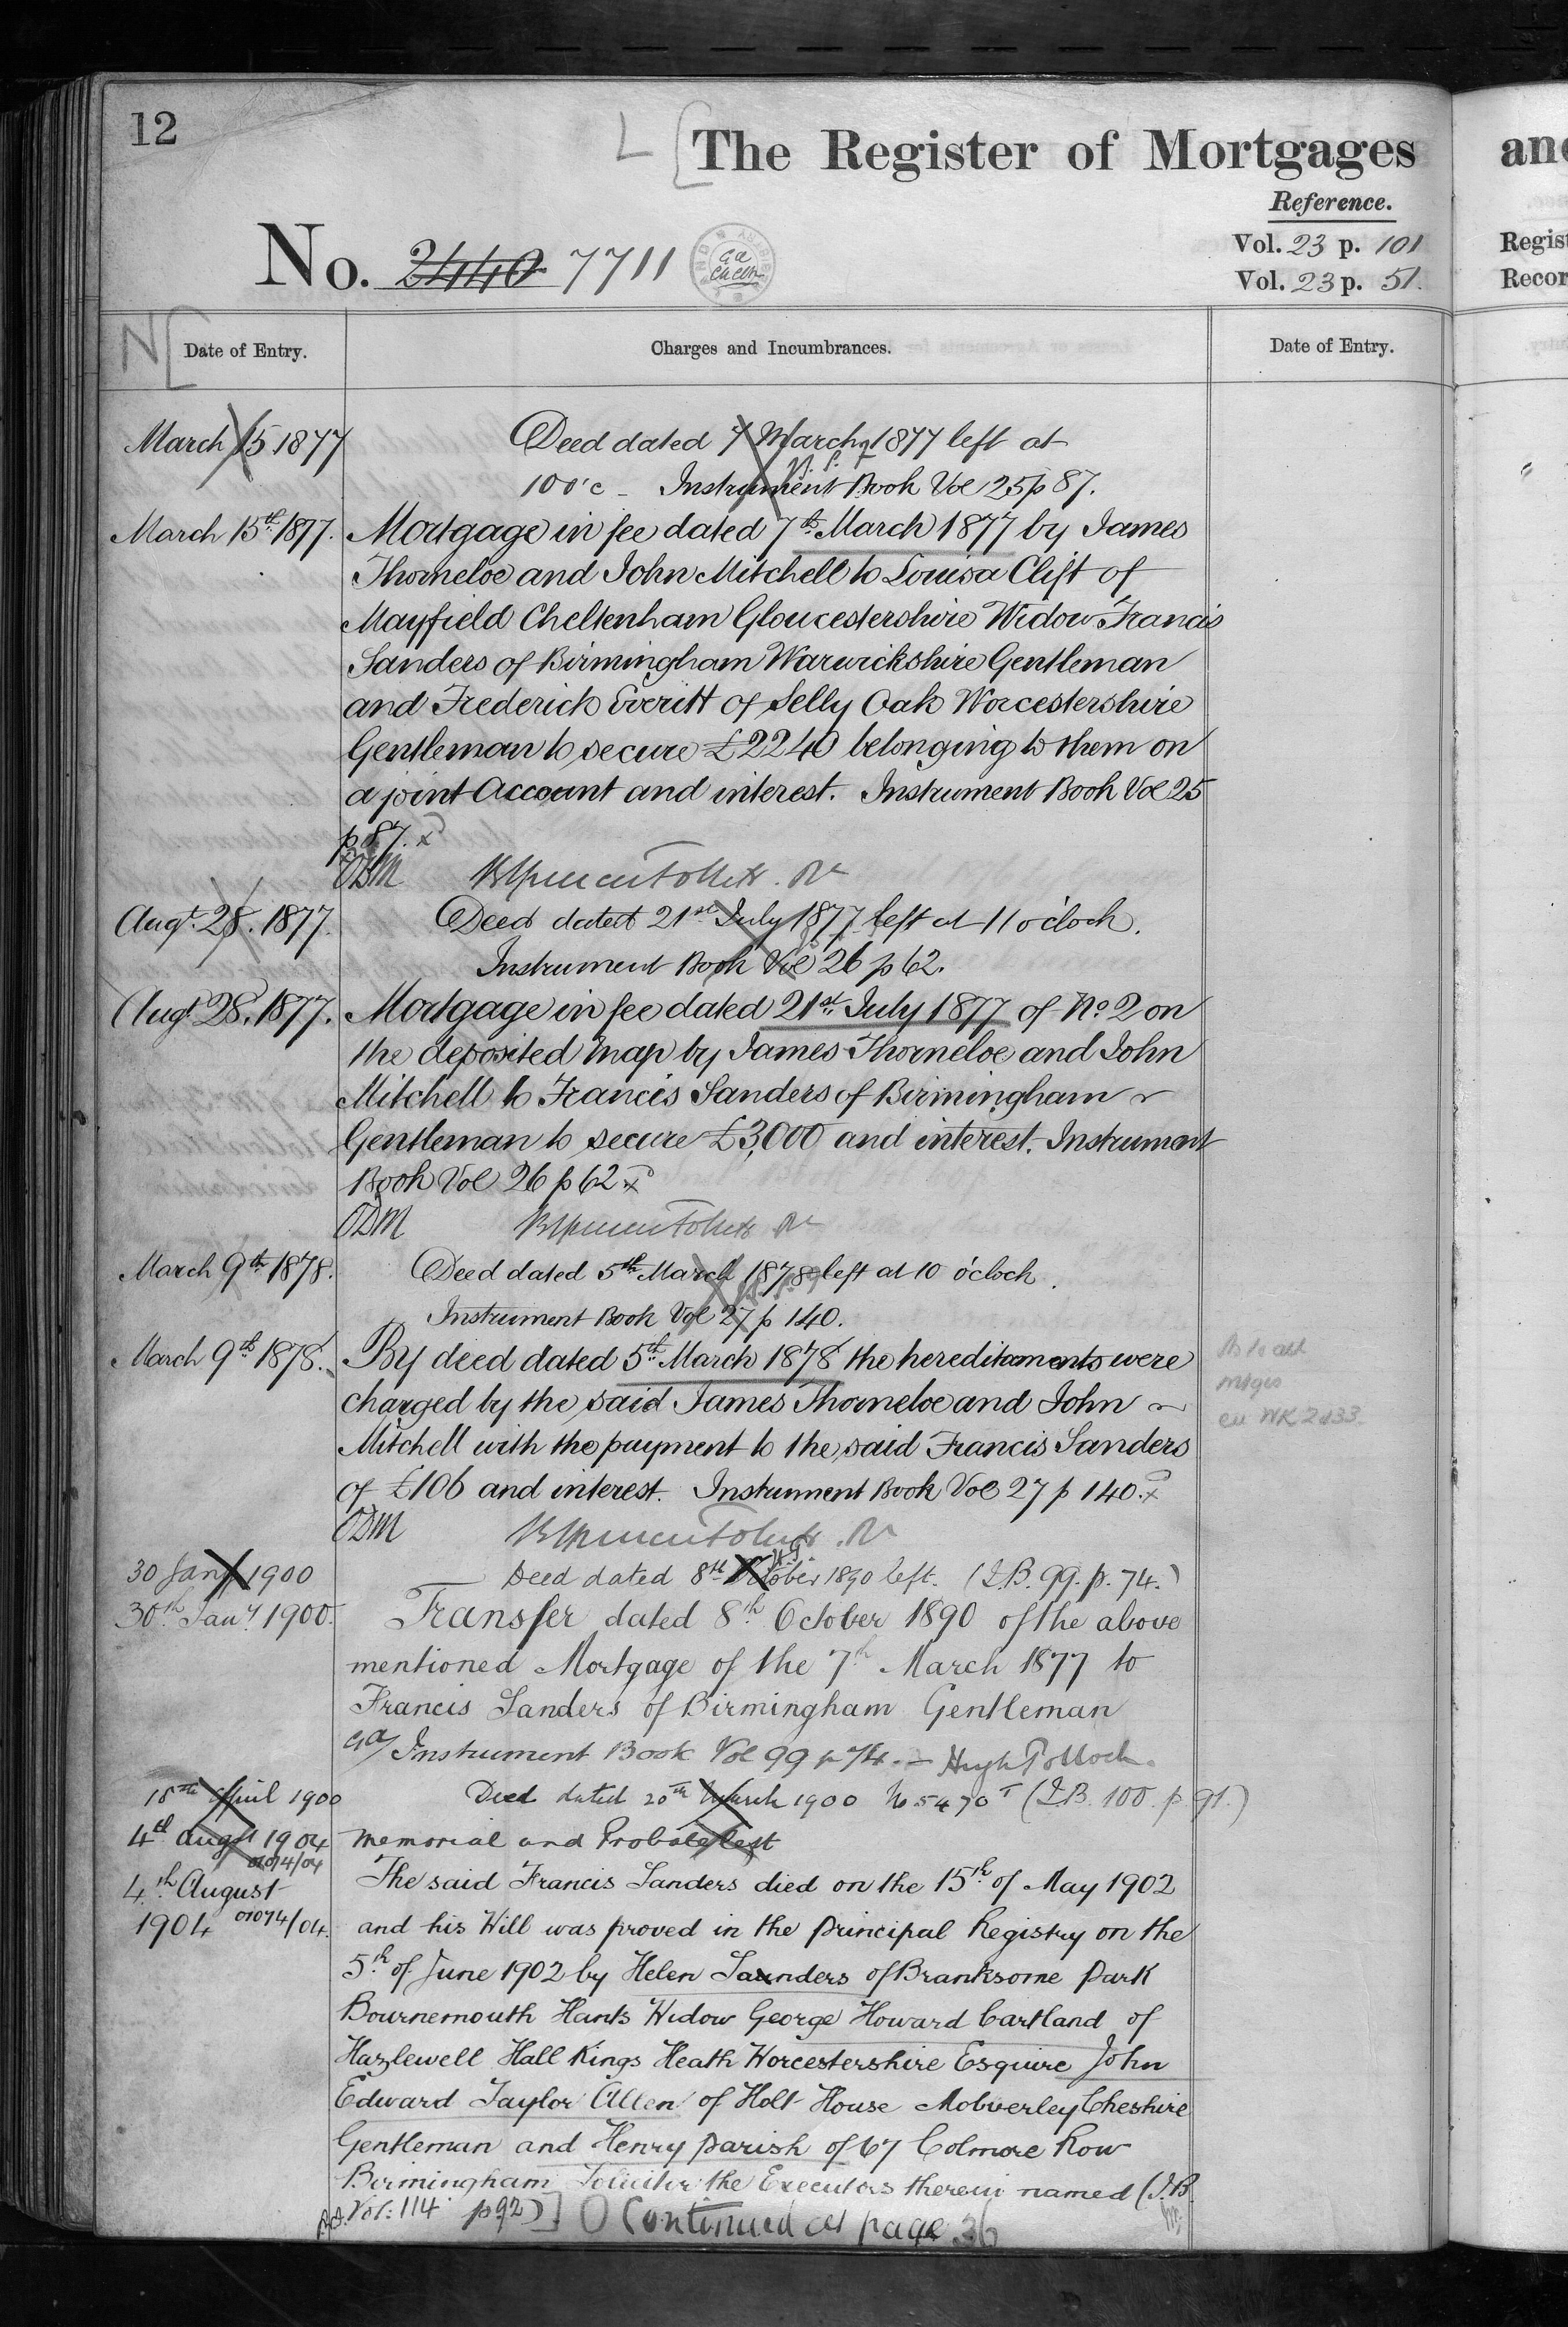 12
L [ The Register of Mortgages
and
Reference.
No. 2440 7711
Vol. 23 p. 101
Vol. 23 p. 51.
Regist
Recor
N[
Date of Entry.
Charges and Incumbrances.
Date of Entry.
March 15 1877
Deed dated 7 March 1877 left at
10 o'c - Instrument Book Vol 25 p 87.
March 15th 1877.
Mortgage in fee dated 7th March 1877 by James
Thorneloe and John Mitchell to Louisa Clift of
Mayfield Cheltenham Gloucestershire Widow Francis
Sanders of Birmingham Warwickshire Gentleman
and Frederick Everitt of Selly Oak Worcestershire
Gentleman to secure £2240 belonging to them on
a joint Account and interest. Instrument Book Vol 25
p 87. x
ODM
Augt. 28. 1877.
Deed dated 21st July 1877 left at 11 o'clock.
Instrument Book Vol 26 p 62.
Augt. 28. 1877.
Mortgage in fee dated 21st July 1877 of No. 2 on
the deposited map by James Thorneloe and John
Mitchell to Francis Sanders of Birmingham
Gentleman to secure £3,000 and interest. Instrument
Book Vol 26 p 62 x
ODM
March 9th 1878.
Deed dated 5th March 1878 left at 10 o'clock.
Instrument Book Vol 27 p 140.
March 9th 1878.
By deed dated 5th March 1878 the hereditaments were
charged by the said James Thorneloe and John
Mitchell with the payment to the said Francis Sanders
of £106 and interest. Instrument Book Vol 27 p 140. x
ODM
mtges
30 Jany 1900
Deed dated 8th October 1890 left. (I.B. 99. p. 74.)
30th Jany 1900.
Transfer dated 8th October 1890 of the above
mentioned Mortgage of the 7th March 1877 to
Francis Sanders of Birmingham Gentleman
Instrument Book Vol 99 p 74. - Hugh Pollock.
18th April 1900
Deed dated 20th March 1900 No 5470 (I.B. 100. p. 91.)
4th Augt 1904
01074/04
Memorial and Probate left
4th August
1904 01074/04.
The said Francis Sanders died on the 15th of May 1902
and his Will was proved in the Principal Registry on the
5th of June 1902 by Helen Saunders of Branksome Park
Bournemouth Hants Widow George Howard Cartland of
Hazlewell Hall Kings Heath Worcestershire Esquire John
Edward Taylor Allen of Holt House Mobverley Cheshire
Gentleman and Henry Parish of 67 Colmore Row
Birmingham Solicitor the Executors therein named (I.B.
Vol: 114 p 92) ] Continued at page 36